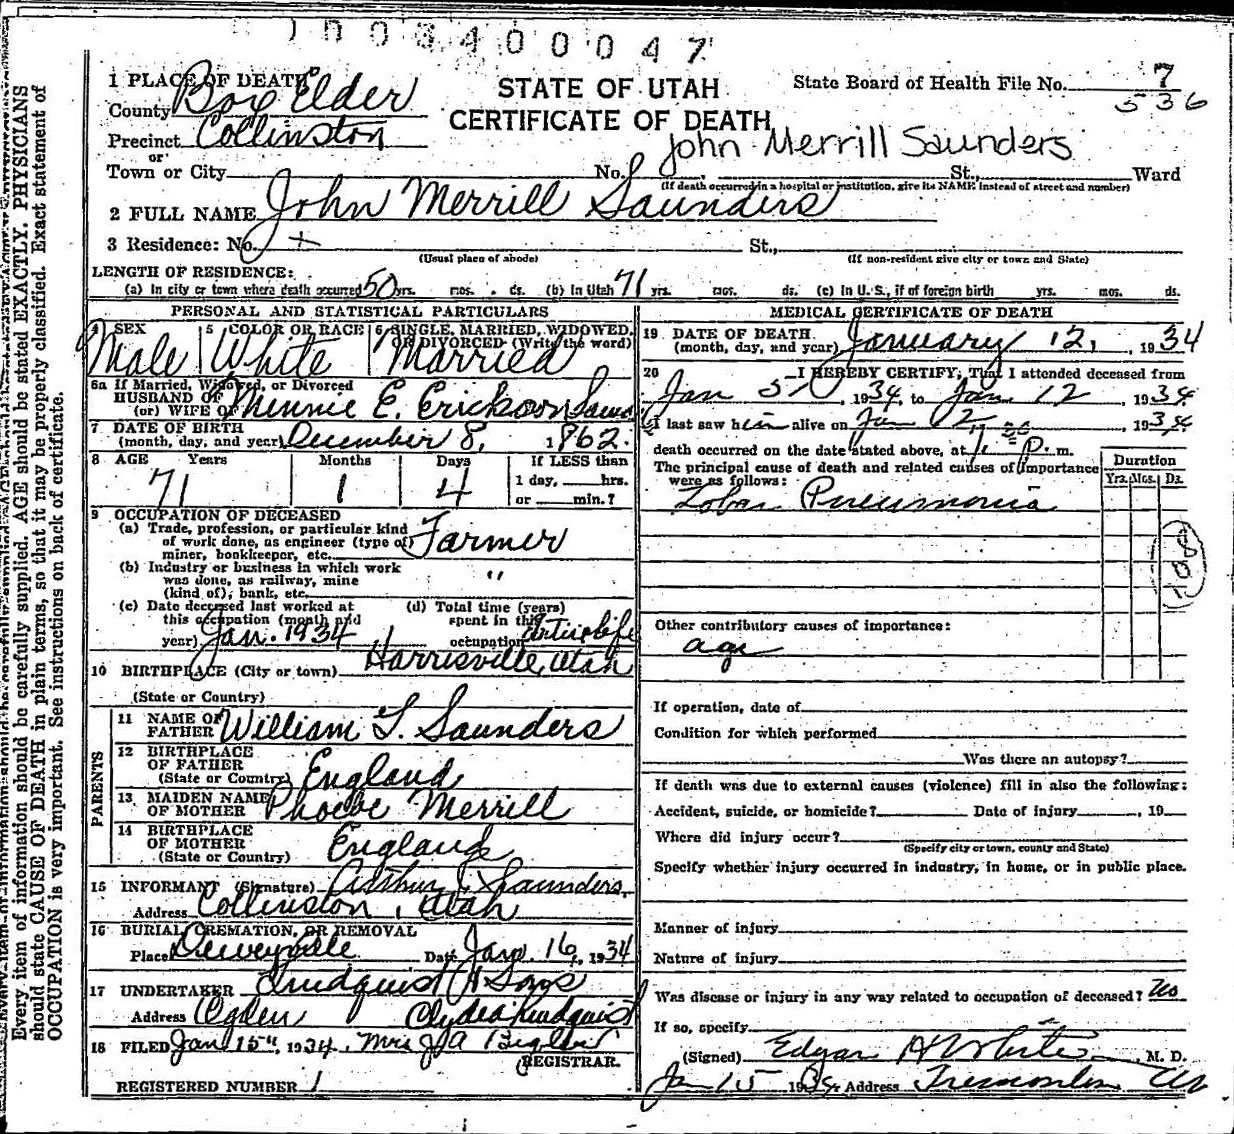 1003400047
1 PLACE OF DEATH
County Box Elder
STATE OF UTAH
CERTIFICATE OF DEATH
State Board of Health File No. 7
536
Precinct Collinston
or
John Merrill Saunders
Town or City No. St., Ward
(If death occurred in a hospital or institution, give its NAME instead of street and number)
2 FULL NAME John Merrill Saunders
3 Residence: No. St.,
(Usual place of abode) (If non-resident give city or town and State)
LENGTH OF RESIDENCE:
(a) In city or town where death occurred 50 yrs. mos. ds. (b) In Utah 71 yrs. mos. ds. (c) In U. S., if of foreign birth yrs. mos. ds.
PERSONAL AND STATISTICAL PARTICULARS
4 SEX 5 COLOR OR RACE 6 SINGLE, MARRIED, WIDOWED,
OR DIVORCED (Write the word)
Male White Married
6a If Married, Widowed, or Divorced
HUSBAND OF
(or) WIFE OF Minnie E. Erickson
7 DATE OF BIRTH
(month, day, and year) December 8, 1862.
8 AGE Years Months Days If LESS than
1 day, hrs.
or min.?
71 1 4
9 OCCUPATION OF DECEASED
(a) Trade, profession, or particular kind
of work done, as engineer (type of)
miner, bookkeeper, etc. Farmer
(b) Industry or business in which work
was done, as railway, mine
(kind of), bank, etc. "
(c) Date deceased last worked at
this occupation (month and
year) Jan. 1934
(d) Total time (years)
spent in this
occupation Entire life
10 BIRTHPLACE (City or town) Harrisville, Utah
(State or Country)
PARENTS
11 NAME OF
FATHER William Saunders
12 BIRTHPLACE
OF FATHER
(State or Country) England
13 MAIDEN NAME
OF MOTHER Phoebe Merrill
14 BIRTHPLACE
OF MOTHER
(State or Country) England
15 INFORMANT (Signature) Arthur Saunders,
Address Collinston, Utah
16 BURIAL, CREMATION, OR REMOVAL
Place Deweyville Date Jan. 16, 1934
17 UNDERTAKER Lindquist & Sons
Address Ogden Clyde Lindquist
18 FILED Jan 15", 1934. Mrs J A Bigler
REGISTRAR.
REGISTERED NUMBER 1
MEDICAL CERTIFICATE OF DEATH
19 DATE OF DEATH
(month, day, and year) January 12, 1934
20 I HEREBY CERTIFY, That I attended deceased from
Jan 5, 1934, to Jan 12, 1934
I last saw him alive on Jan 12, 1934
death occurred on the date stated above, at P. m.
The principal cause of death and related causes of importance
were as follows:
Duration
Yrs. Mos. Ds.
Lobar Pneumonia
108
Other contributory causes of importance:
age
If operation, date of
Condition for which performed
Was there an autopsy?
If death was due to external causes (violence) fill in also the following:
Accident, suicide, or homicide? Date of injury , 19
Where did injury occur?
(Specify city or town, county and State)
Specify whether injury occurred in industry, in home, or in public place.
Manner of injury
Nature of injury
Was disease or injury in any way related to occupation of deceased? No
If so, specify
(Signed) Edgar H White , M. D.
Jan 15 1934 Address Tremonton
Every item of information should be carefully supplied. AGE should be stated EXACTLY. PHYSICIANS
should state CAUSE OF DEATH in plain terms, so that it may be properly classified. Exact statement of
OCCUPATION is very important. See instructions on back of certificate.